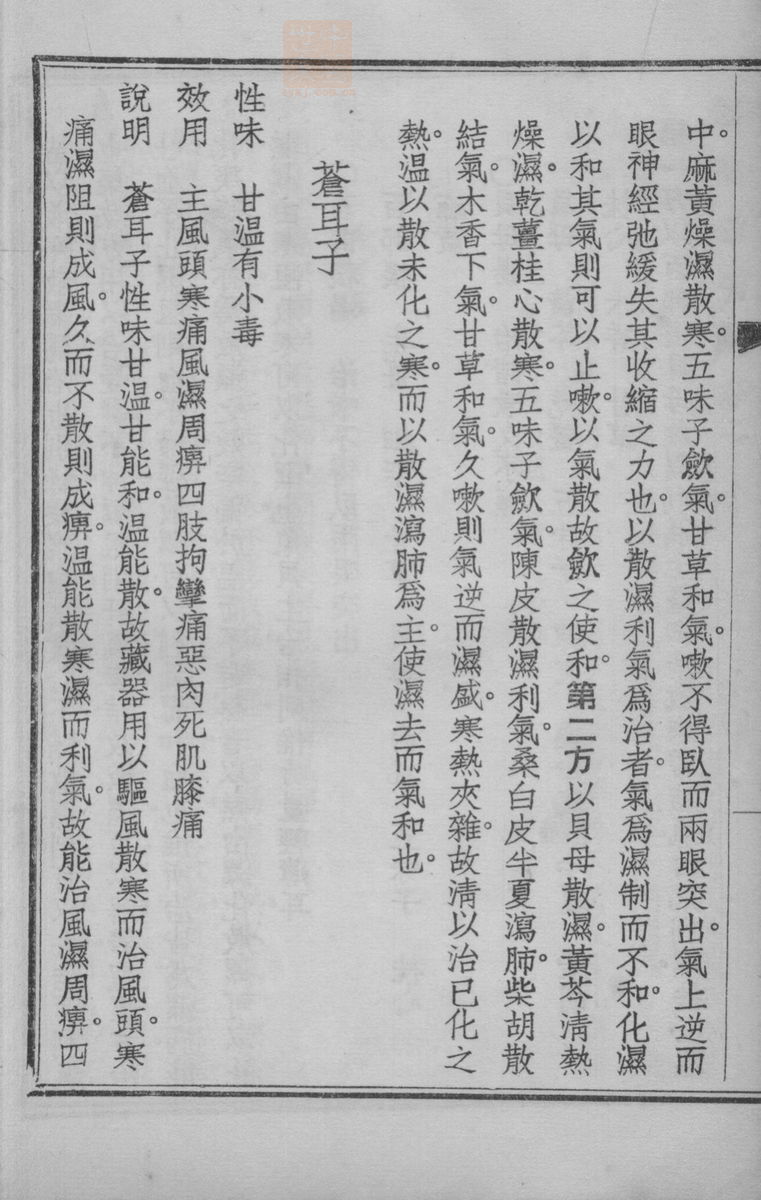 中。麻黃燥濕散寒。五味子歛氣。甘草和氣。嗽不得臥而兩眼突出。氣上逆而
眼神經弛緩失其收縮之力也。以散濕利氣爲治者。氣爲濕制而不和。化濕
以和其氣則可以止嗽。以氣散故歛之使和。第二方以貝母散濕。黃芩淸熱
燥濕。乾薑桂心散寒。五味子歛氣。陳皮散濕利氣。桑白皮半夏瀉肺。柴胡散
結氣。木香下氣。甘草和氣。久嗽則氣逆而濕盛。寒熱夾雜。故淸以治已化之
熱。温以散未化之寒。而以散濕瀉肺爲主。使濕去而氣和也。
蒼耳子
性味　甘温有小毒
效用　主風頭寒痛風濕周痹四肢拘攣痛惡肉死肌膝痛
說明　蒼耳子性味甘温。甘能和。温能散。故藏器用以驅風散寒而治風頭。寒
痛濕阻則成風。久而不散則成痹。温能散寒濕而利氣。故能治風濕周痹。四